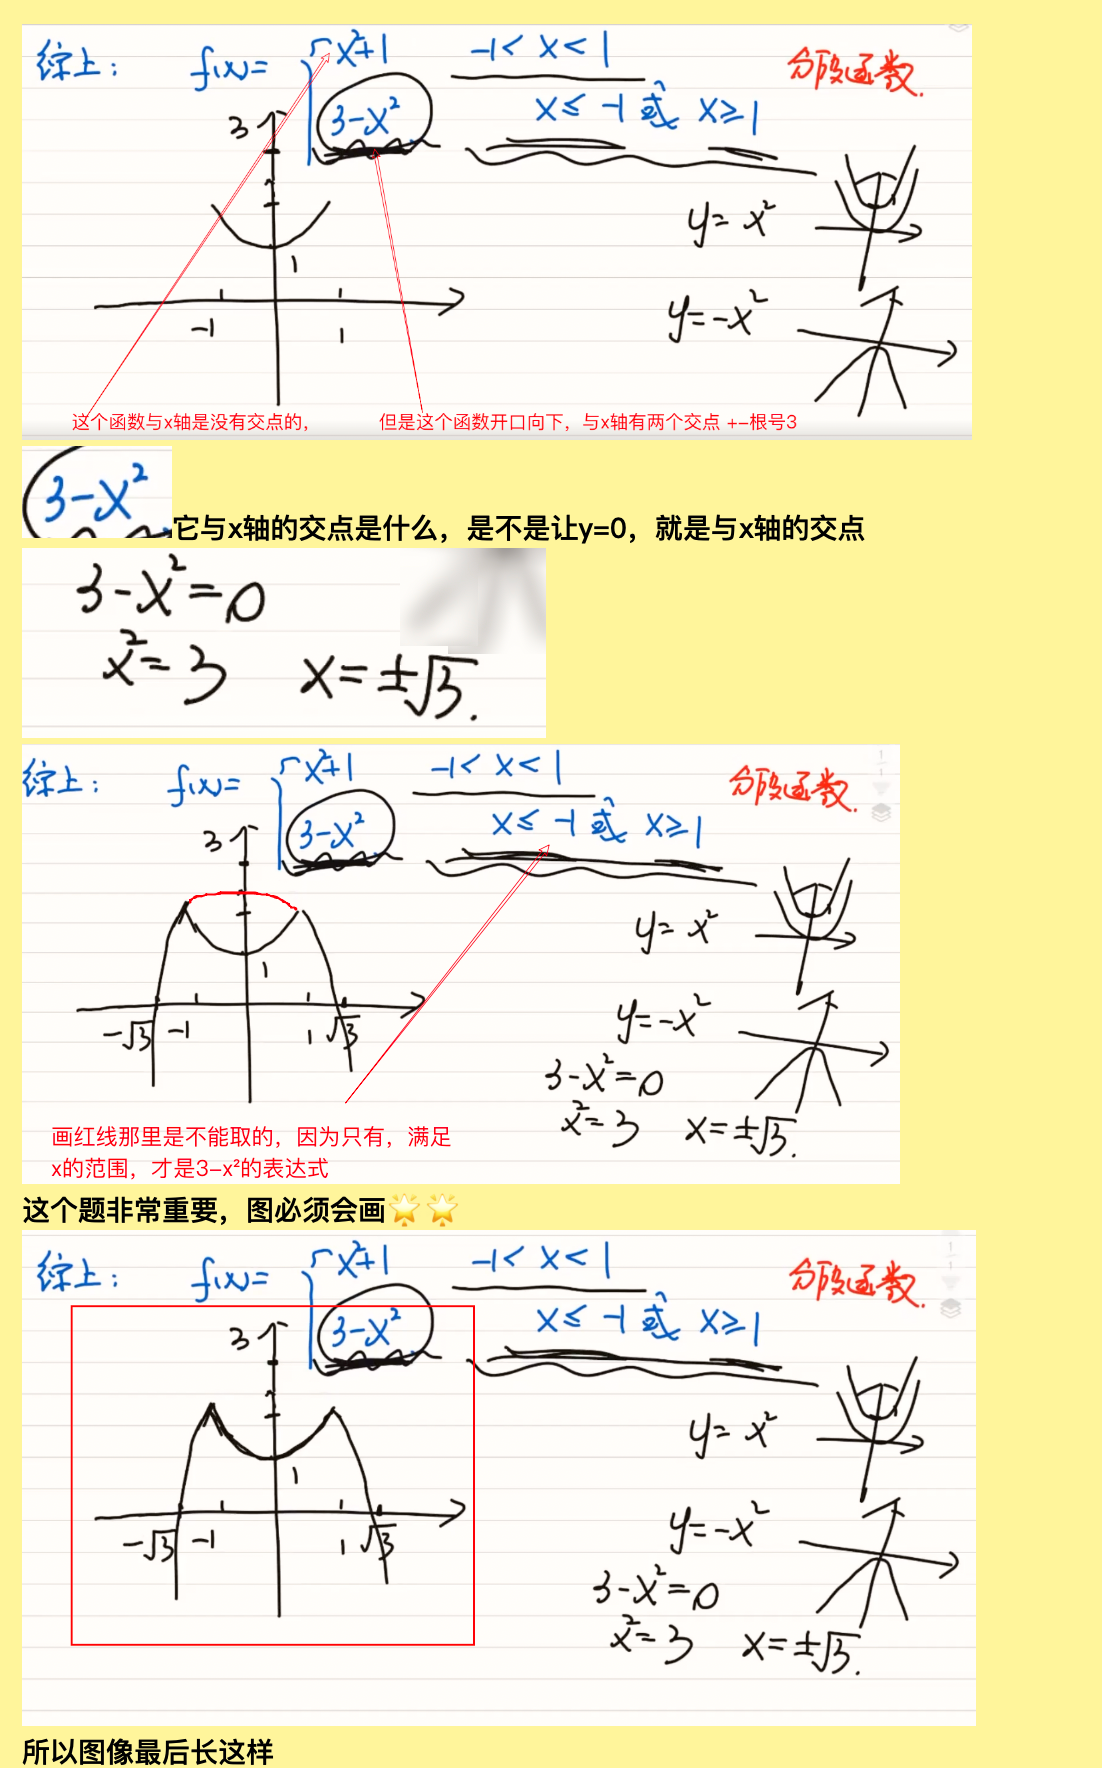 综上： f(x)= x²+1 -1< x < 1 分段函数.
3-x² x≤ -1 或 x≥1
3
y= x²
1
y=-x²
-1 1
这个函数与x轴是没有交点的， 但是这个函数开口向下，与x轴有两个交点 +-根号3
3-x² 它与x轴的交点是什么，是不是让y=0，就是与x轴的交点
3-x²=0
x²=3 x=±√3.
综上： f(x)= x²+1 -1< x < 1 分段函数.
3-x² x≤ -1 或 x≥1
3
y= x²
1
y=-x²
-√3 -1 1 √3
3-x²=0
x²=3 x=±√3.
画红线那里是不能取的，因为只有，满足
x的范围，才是3-x²的表达式
这个题非常重要，图必须会画🌟🌟
综上： f(x)= x²+1 -1< x < 1 分段函数.
3-x² x≤ -1 或 x≥1
3
y= x²
1
y=-x²
-√3 -1 1 √3
3-x²=0
x²=3 x=±√3.
所以图像最后长这样